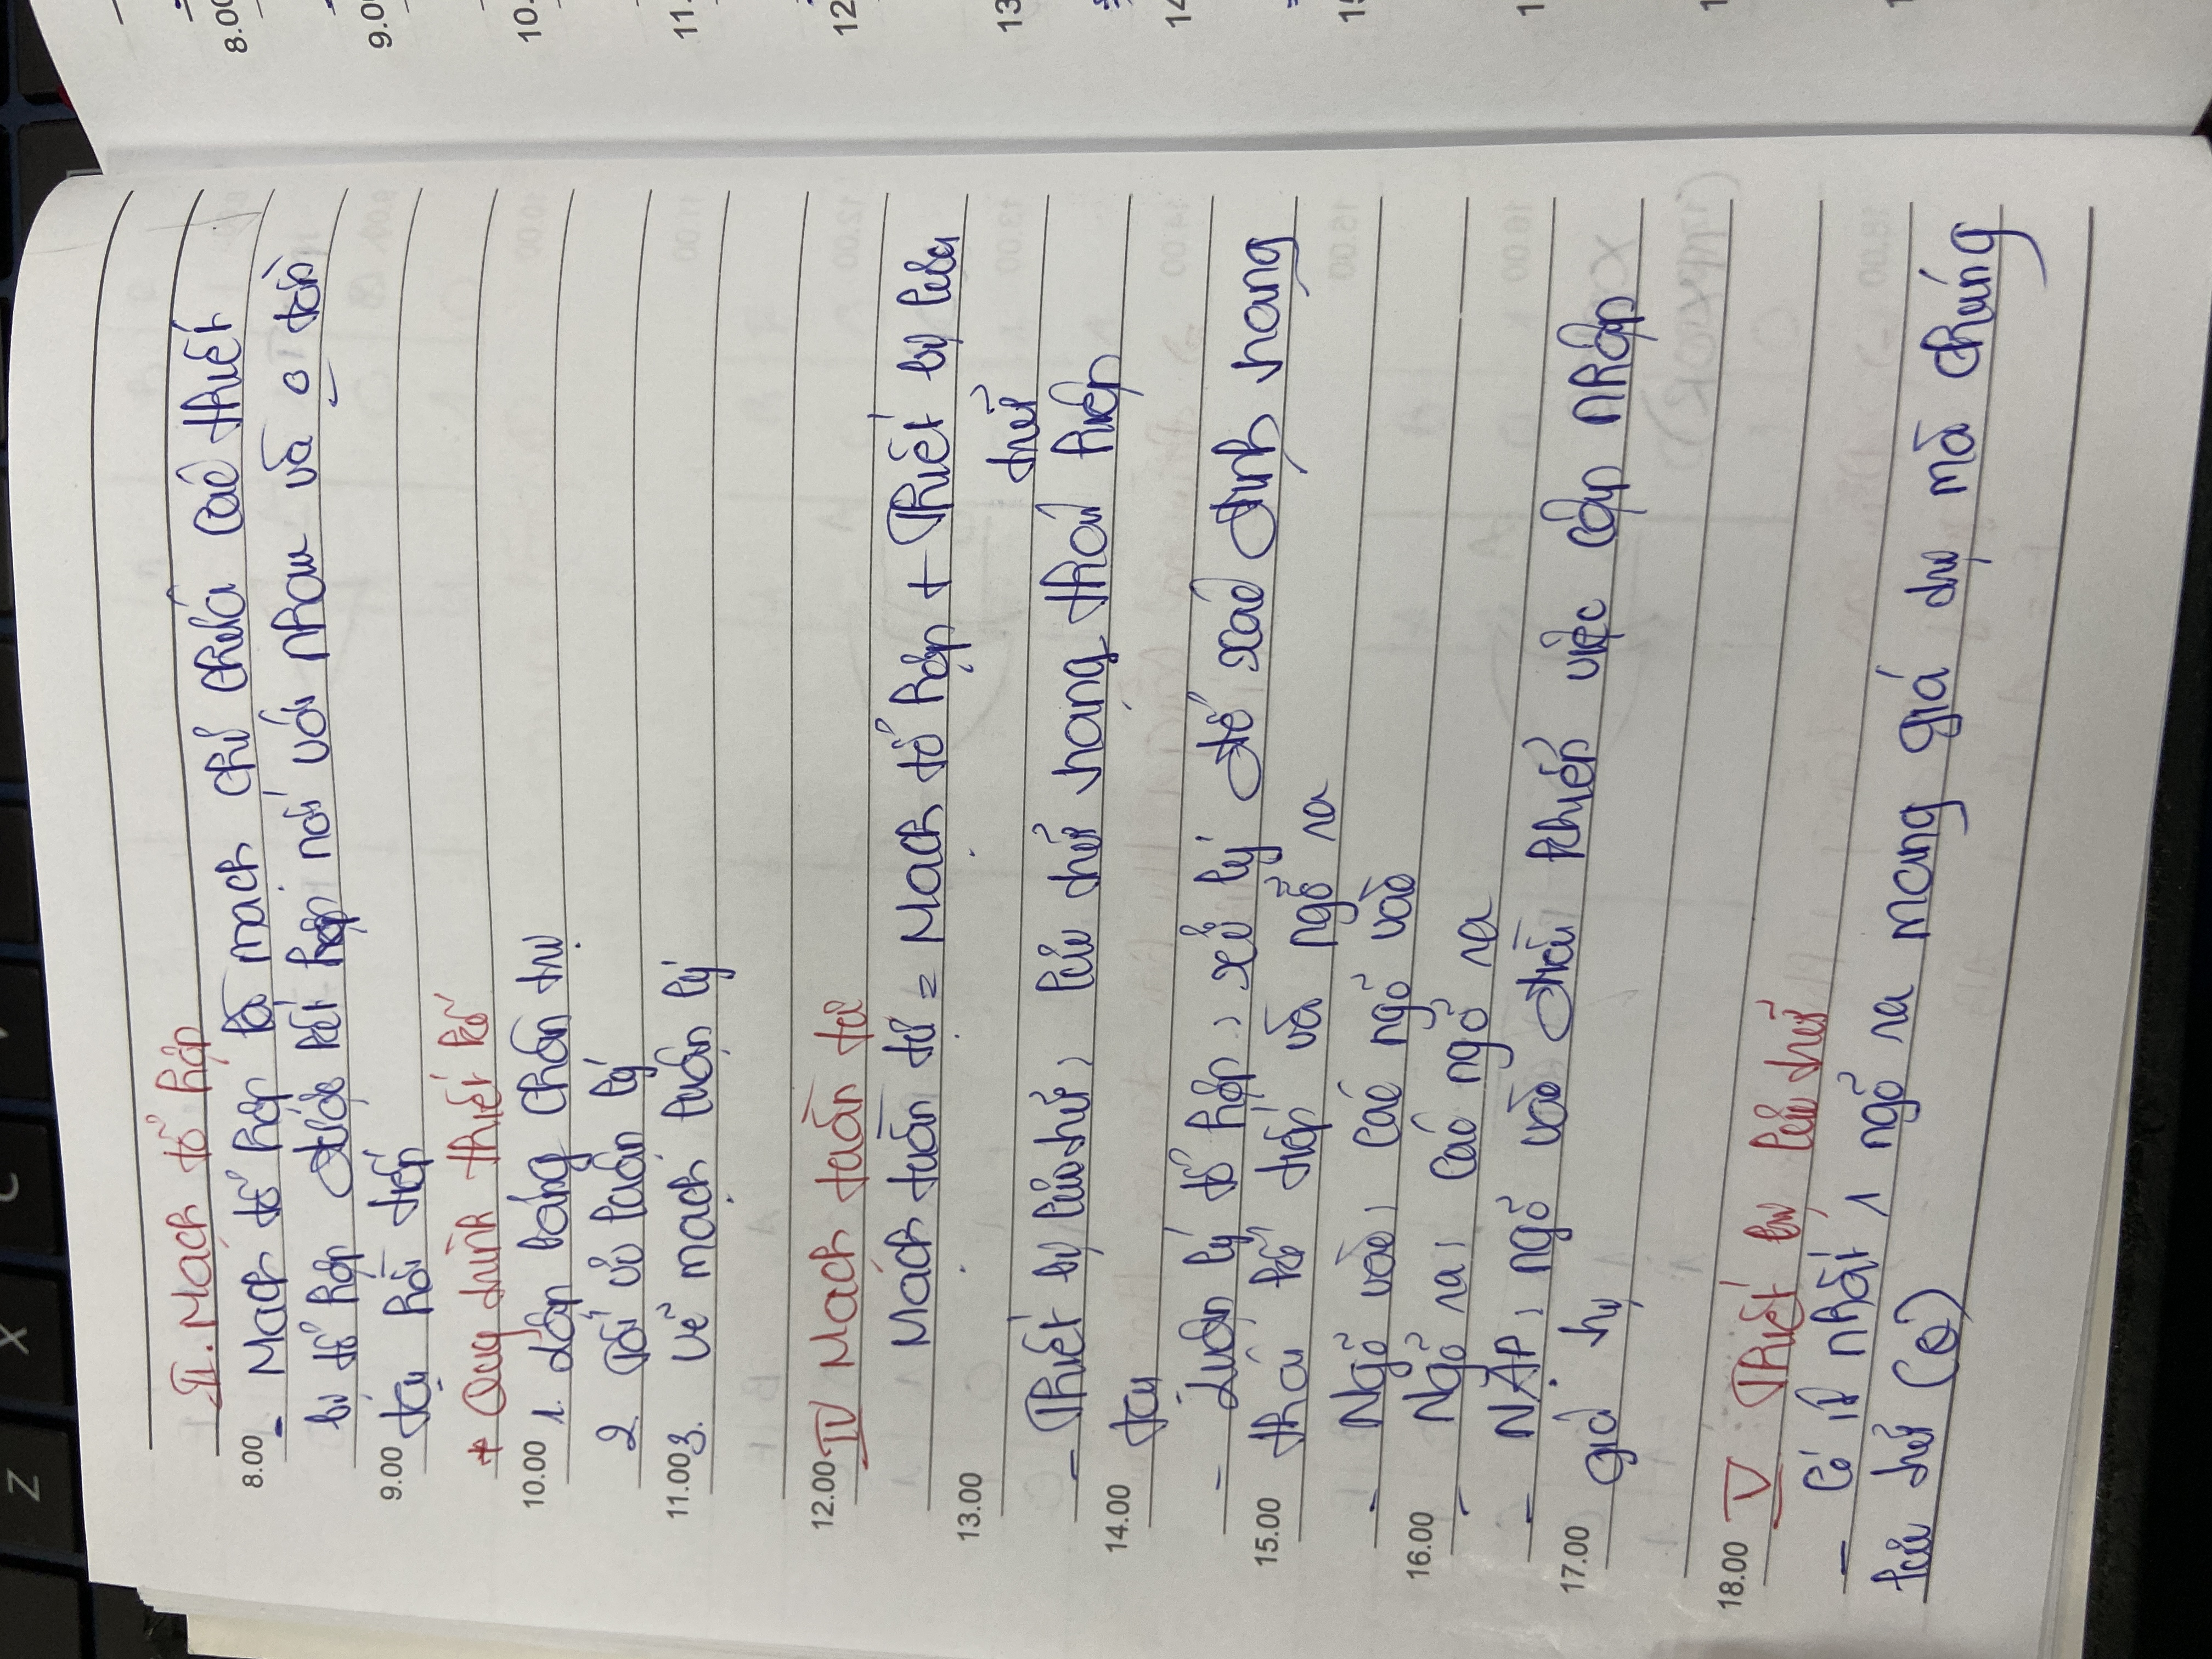 II. Mạch tổ hợp
8.00 - Mạch tổ hợp là mạch chỉ chứa các thiết
bị tổ hợp được kết hợp nối với nhau và o tồn
9.00 tại hồi tiếp
* Quy trình thiết kế
10.00 1. Lập bảng chân trị
2. Tối ưu luận lý
11.00 3. Vẽ mạch luận lý
12.00 IV Mạch tuần tự
Mạch tuần tự = Mạch tổ hợp + Thiết bị lưu
13.00
trữ
- Thiết bị lưu trữ: lưu trữ trạng thái hiện
14.00 tại
- Luận lý tổ hợp: xử lý để xác định trạng
15.00 thái kế tiếp và ngõ ra
- Ngõ vào: các ngõ vào
16.00 - Ngõ ra: các ngõ ra
- NẠP: ngõ vào điều khiển việc cập nhập
17.00 giá trị
18.00 V Thiết bị lưu trữ
- Có ít nhất 1 ngõ ra mang giá trị mà chúng
lưu trữ (Q)
8.00
9.0
10.
11.
12
13
14
15
1
1